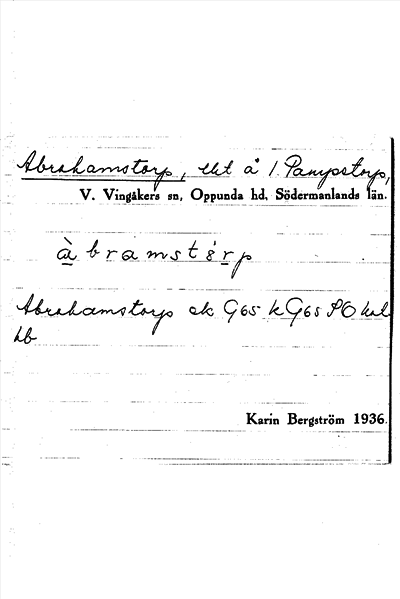 Abrahamstorp, lht å 1 Pampstorp,
V. Vingåkers sn, Oppunda hd, Södermanlands län.
àbramstɤrp
Abrahamstorp ek G65 k G65 PO kal
hb
Karin Bergström 1936.